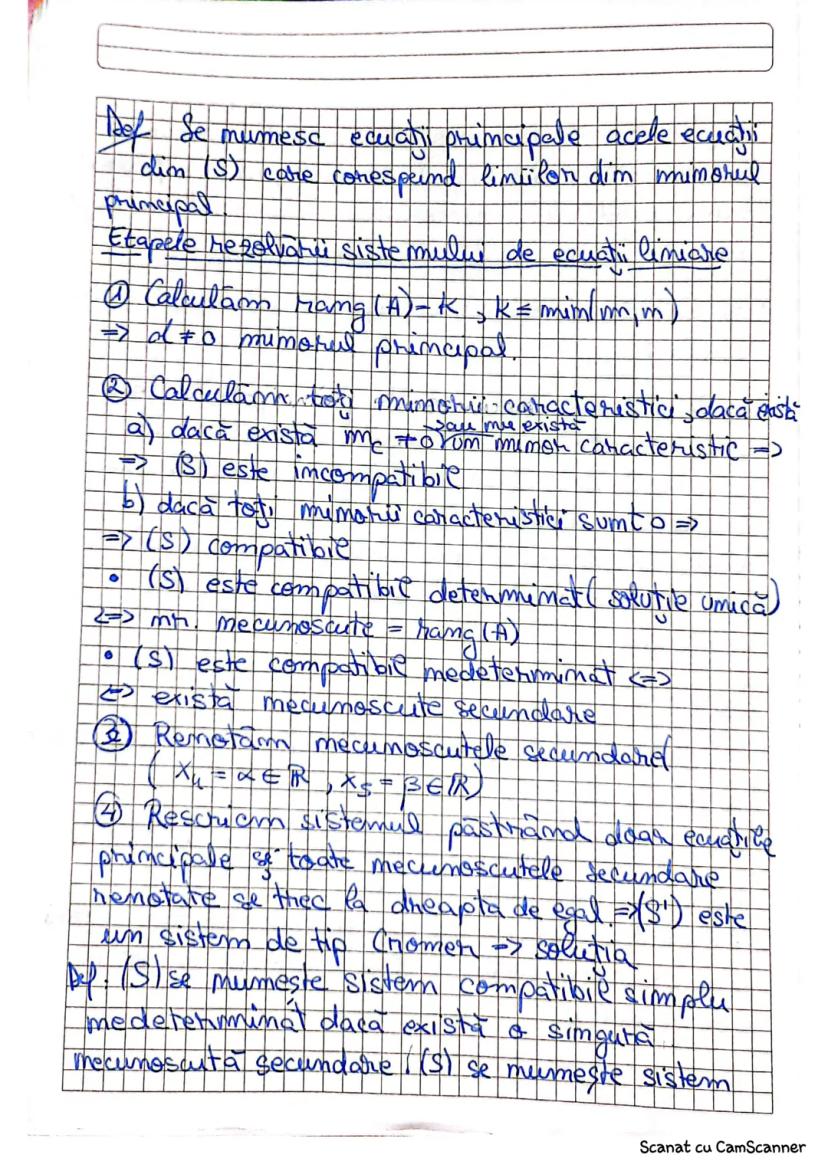 Def Se numesc ecuații principale acele ecuații
din (S) care corespund liniilor din minorul
principal.
Etapele rezolvării sistemului de ecuații liniare
① Calculăm rang(A)=k, k≤min(m,n)
=> d≠0 minorul principal.
② Calculăm toți minorii caracteristici, dacă există
sau nu există
a) dacă există mc ≠0 un minor caracteristic =>
=> (S) este incompatibil
b) dacă toți minorii caracteristici sunt 0 =>
=> (S) compatibil
• (S) este compatibil determinat (soluție unică)
<=> nr. necunoscute = rang(A)
• (S) este compatibil nedeterminat <=>
<=> există necunoscute secundare
③ Renotăm necunoscutele secundare(
( x₄ = α ∈ ℝ, x₅ = β ∈ ℝ)
④ Rescriem sistemul păstrând doar ecuațiile
principale și toate necunoscutele secundare
renotate se trec la dreapta de egal. =>(S') este
un sistem de tip Cramer => soluția
Def. (S) se numește sistem compatibil simplu
nedeterminat dacă există o singură
necunoscută secundare. (S) se numește sistem
Scanat cu CamScanner